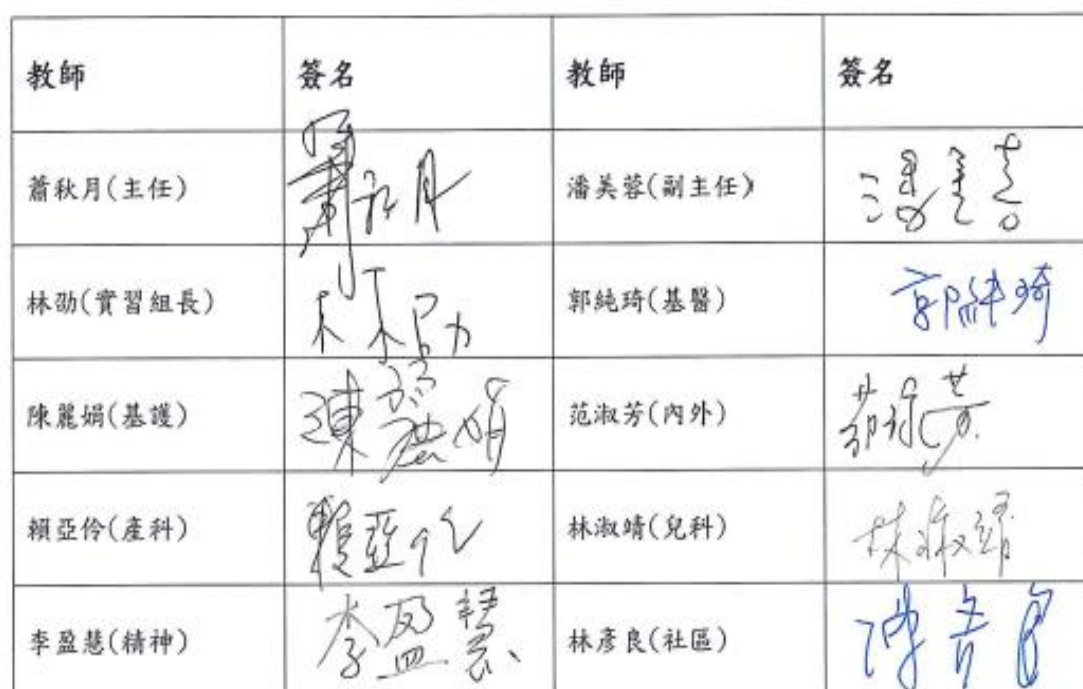 教師 簽名 教師 簽名
蕭秋月(主任) 蕭秋月 潘美蓉(副主任)
林劭(實習組長) 林劭 郭純琦(基醫) 郭純琦
陳麗娟(基護) 陳麗娟 范淑芳(內外) 范淑芳
賴亞伶(產科) 賴亞伶 林淑靖(兒科) 林淑靖
李盈慧(精神) 李盈慧 林彥良(社區)